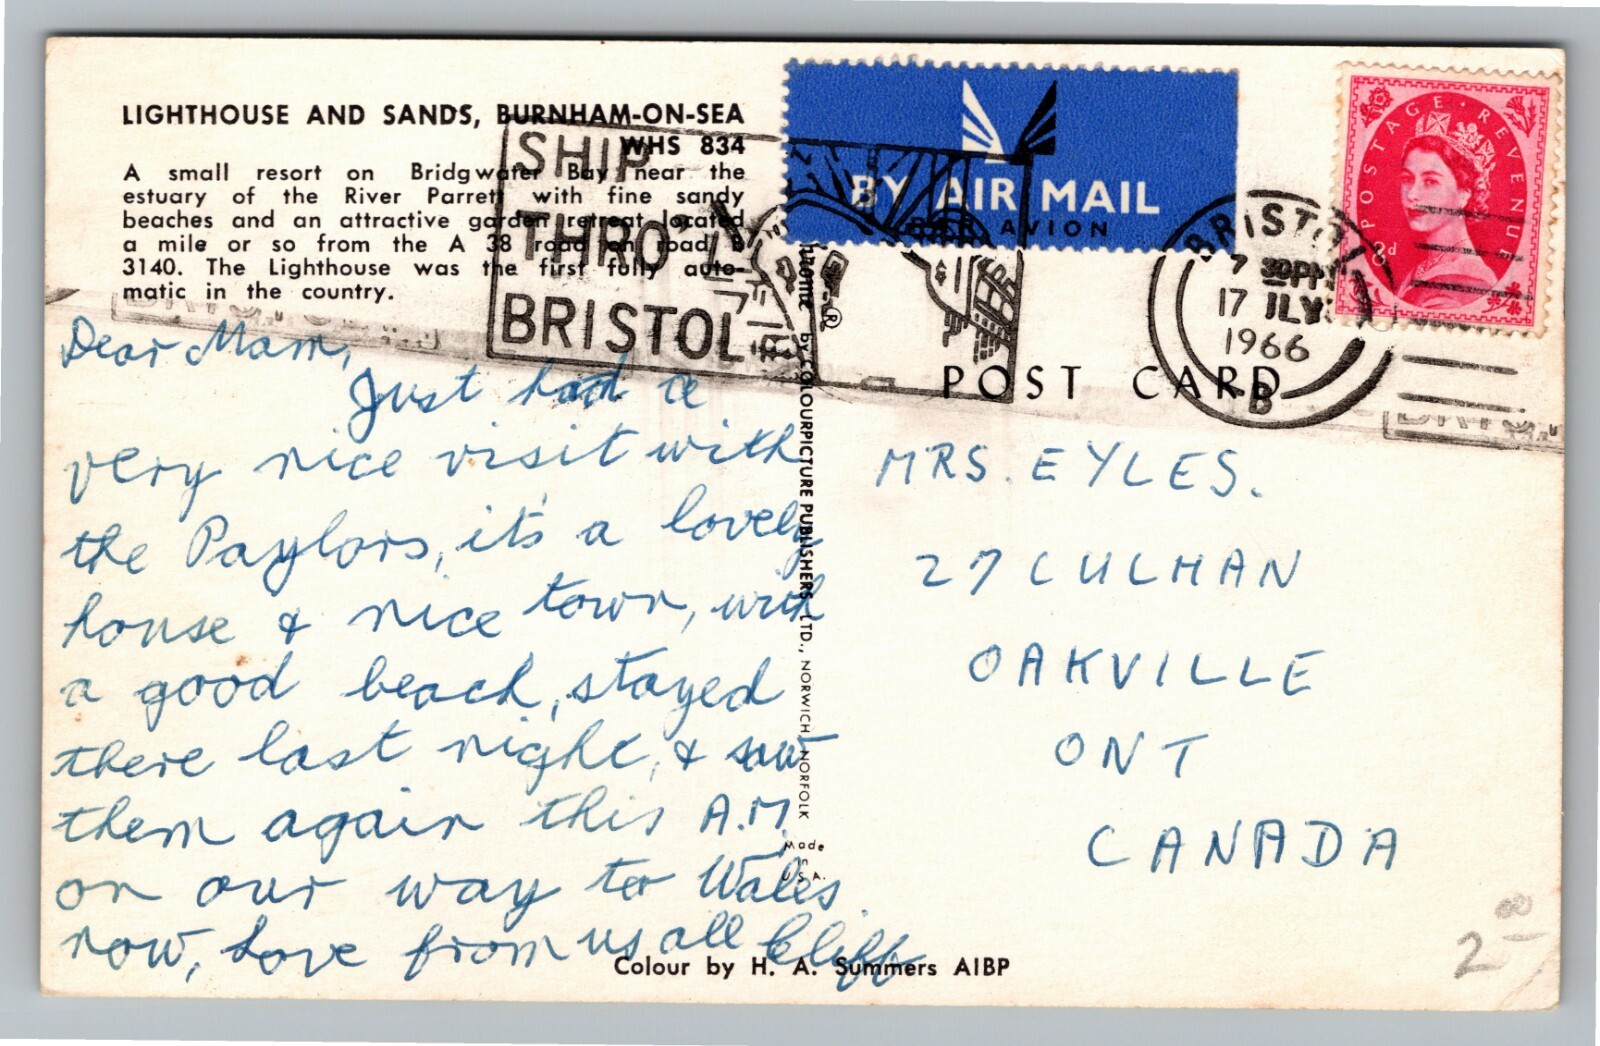 LIGHTHOUSE AND SANDS, BURNHAM-ON-SEA
WHS 834
A small resort on Bridgwater Bay near the
estuary of the River Parrett with fine sandy
beaches and an attractive garden retreat located
a mile or so from the A 38 road on road B
3140. The Lighthouse was the first fully auto-
matic in the country.
SHIP
THRO'
BRISTOL
BY AIR MAIL
PAR AVION
POSTAGE REVENUE
8d
BRISTOL
7 30PM
17 JLY
1966
B
POST CARD
Dear Mam,
Just had a
very nice visit with
the Paylors, it's a lovely
house & nice town, with
a good beach, stayed
there last night, & saw
them again this A.M.
on our way to Wales
now, Love from us all Cliff
MRS. EYLES.
27 CULHAN
OAKVILLE
ONT
CANADA
by COLOURPICTURE PUBLISHERS LTD., NORWICH NORFOLK
®
Made
in
U.S.A.
Colour by H. A. Summers AIBP
2 00